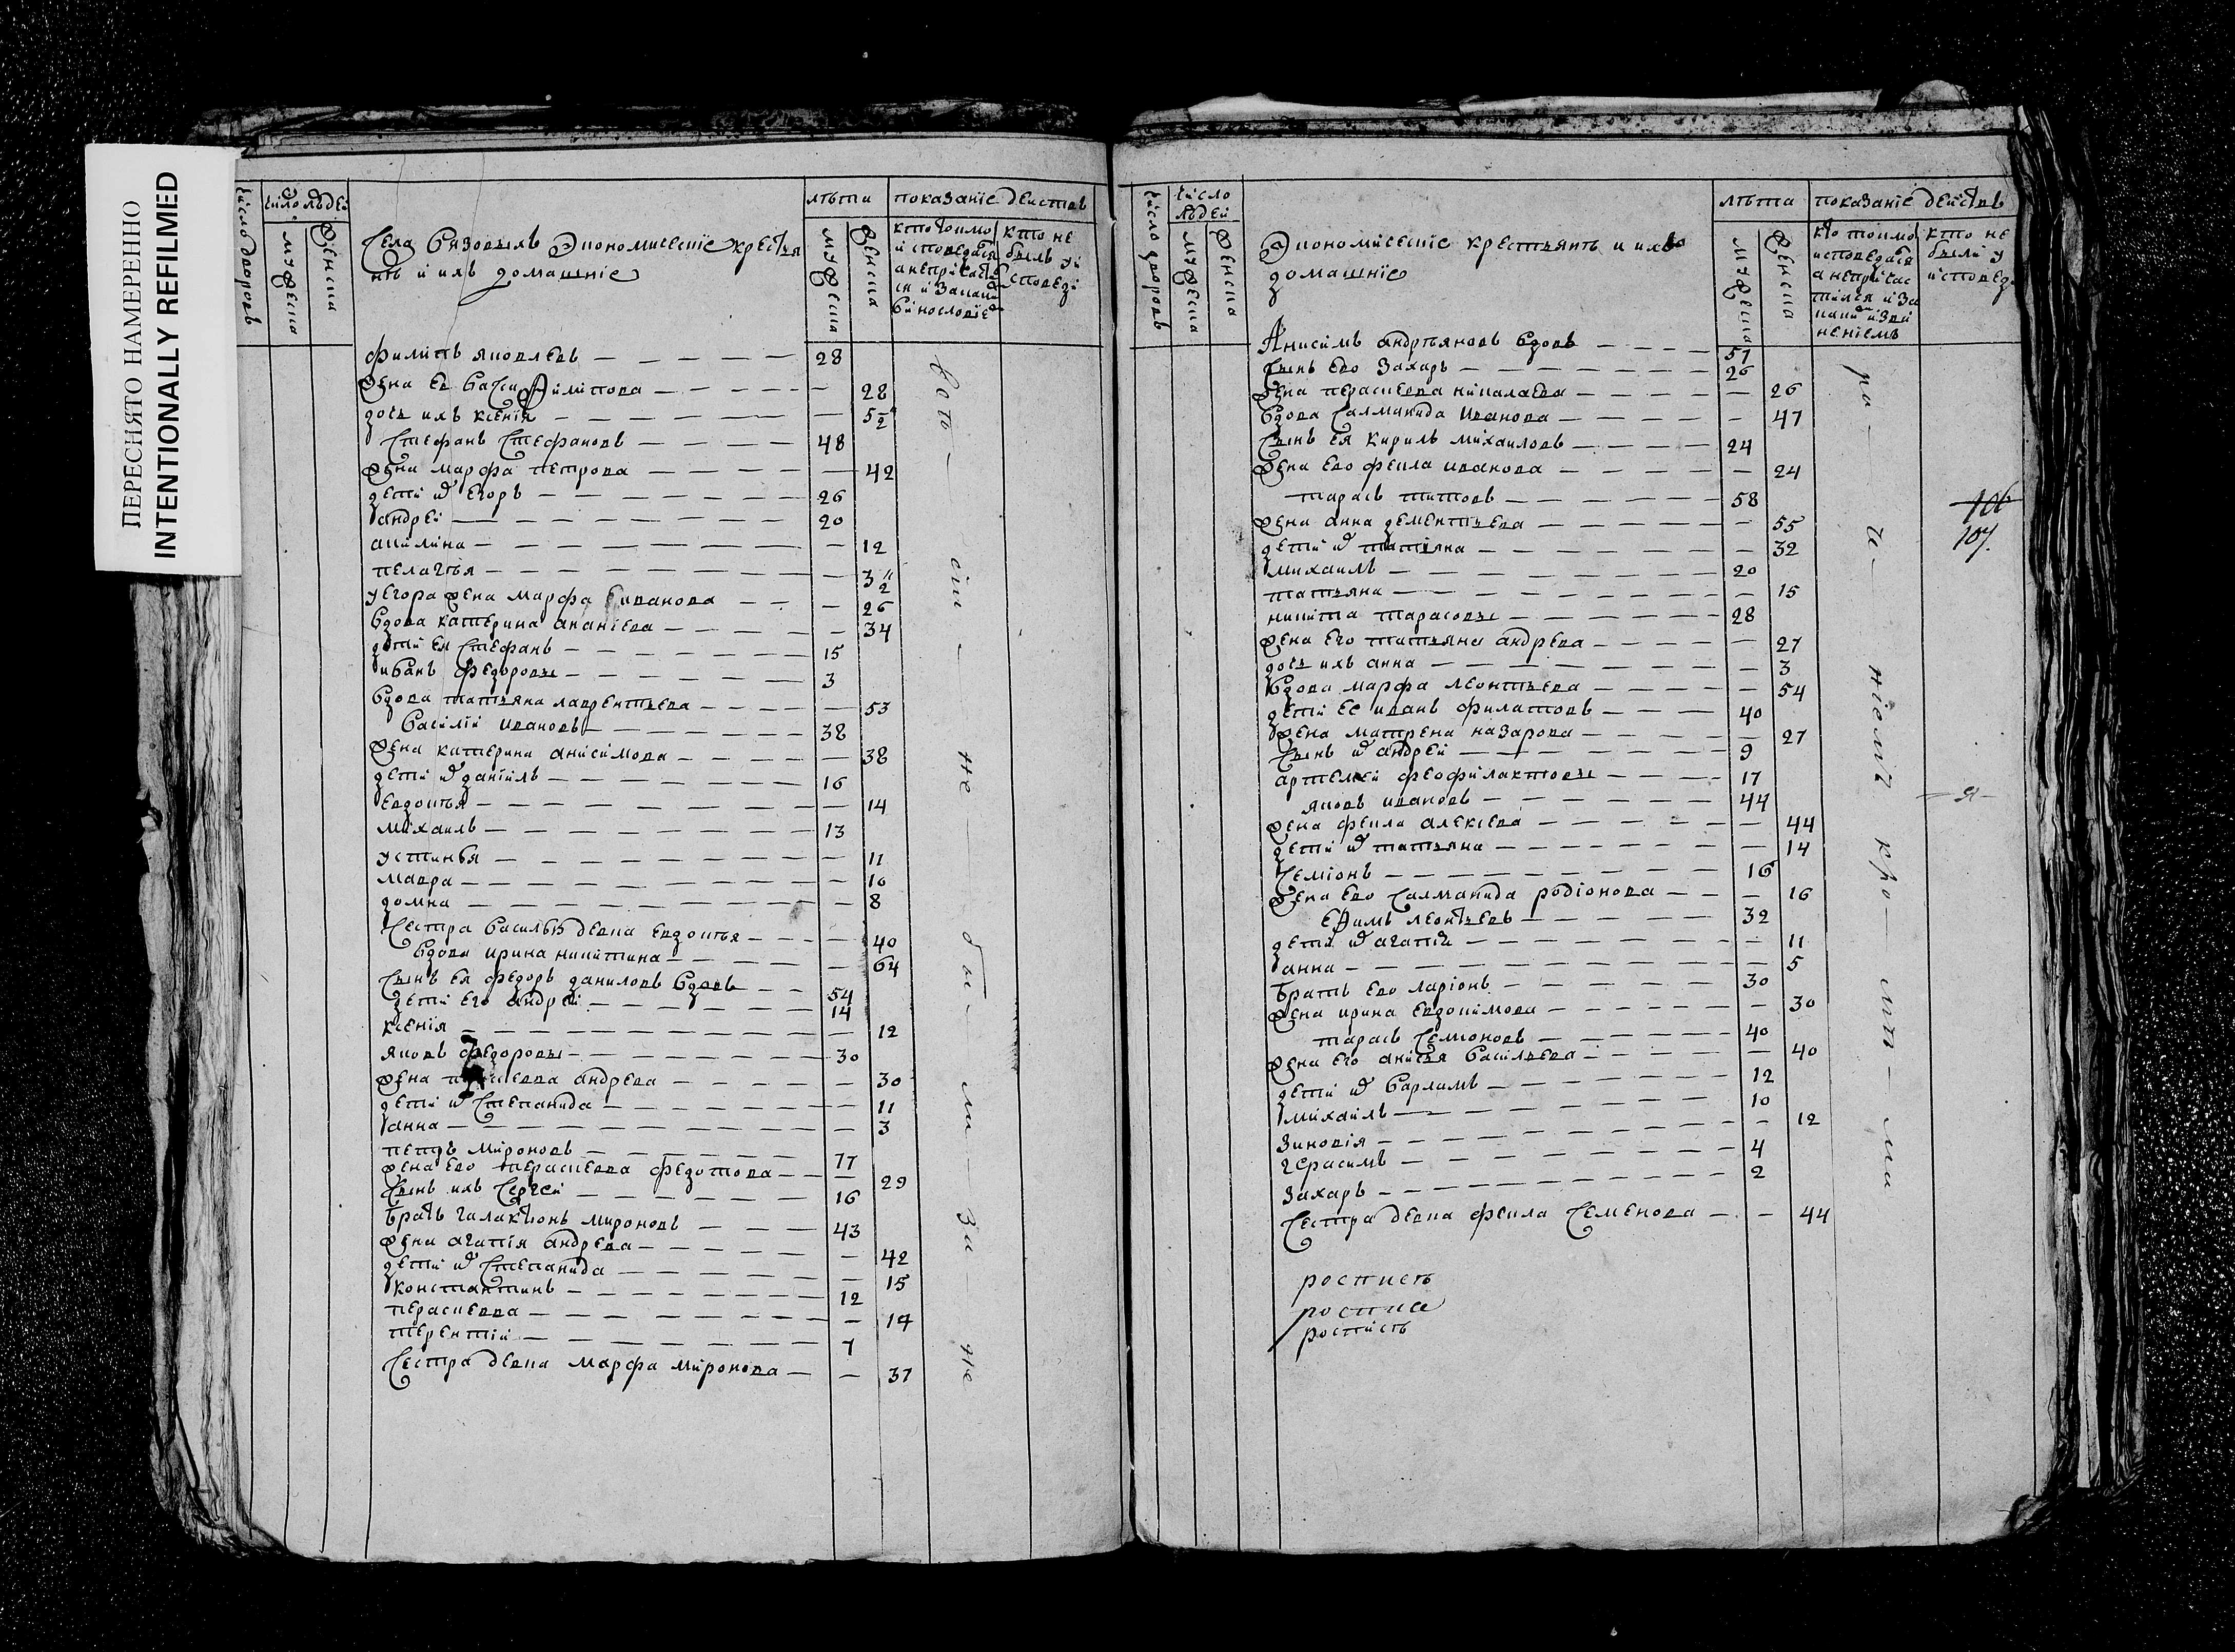 ПЕРЕСНЯТО НАМЕРЕННО
INTENTIONALLY REFILMED
число дворовъ
число людей
мужеска
женска
Села Вязовыхъ Экономическіе крестья
нѣ и ихъ домашніе
лѣта
мужеска
женска
показаніе действъ
кто не
былъ у и
споведи
филипъ яковлевъ — 28
жена ево филипова — 28
дочь ихъ ксенія — 5 1/2
Стефанъ Стефановъ — 48
жена марфа петрова — 42
дети их егоръ — 26
андрей — 20
акилина — 12
пелагѣя — 3 1/2
у егора жена марфа иванова — 26
вдова катерина ананіева — 34
дети ея Стефанъ — 15
иванъ федоровы — 3
вдова татьяна лаврентьева — 53
василій ивановъ — 38
жена катерина анисимова — 38
дети их даніилъ — 16
евдотья — 14
михаилъ — 13
устинья — 11
мавра — 10
домна — 8
Сестра василья девка евдотья — 40
вдова ирина никитина — 64
Сынъ ея федоръ даниловъ вдовъ — 54
дети его андрей — 14
ксенія — 12
яковъ федоровы — 30
жена андрева — 30
дети их Степанида — 11
анна — 3
петръ мироновъ — 77
жена ево праскева федотова — 29
Сынъ ихъ Сергей — 16
братъ галактіонъ мироновъ — 43
жена агапія андрева — 42
дети их Степанида — 15
константинъ — 12
параскева — 14
терентій — 7
Сестра девка марфа миронова — 37
вото — сти — не — бы — ли — за — не
число дворовъ
число
людей
мужеска
женска
Экономическіе крестьянъ и ихъ
домашніе
лѣта
мужеска
женска
показаніе действъ
кто не
были у
исповед.
Анисимъ андрѣяновъ вдовъ — 57
Сынъ ево Захаръ — 26
жена пераскева николаева — 26
вдова Салманида иванова — 47
Сынъ ея кирилъ михаиловъ — 24
жена ево фекла иванова — 24
тарасъ титовъ — 58
жена анна дементьева — 55
дети их татіяна — 32
михаилъ — 20
татьяна — 15
никита тарасовы — 28
жена его татьяна андрева — 27
дочь ихъ анна — 3
вдова марфа леонтьева — 54
дети ее иванъ филатовъ — 40
жена матрена назарова — 27
Сынъ их андрей — 9
артемей феофилактовы — 17
яковъ ивановъ — 44
жена фекла алексева — 44
дети их татьяна — 14
Семіонъ — 16
жена ево Салманида родіонова — 16
ефимъ леонтьевъ — 32
дети их агапія — 11
анна — 5
братъ ево ларіонъ — 30
жена ирина евдокимова — 30
тарасъ Семіоновъ — 40
жена его анисья васильева — 40
дети их варламъ — 12
михаилъ — 10
зиновія — 12
герасимъ — 4
захаръ — 2
Сестра девка фекла Семенова — 44
роспись
росписе
роспись
106
107.
я
ра — и — ніемъ кро — мѣ — ма